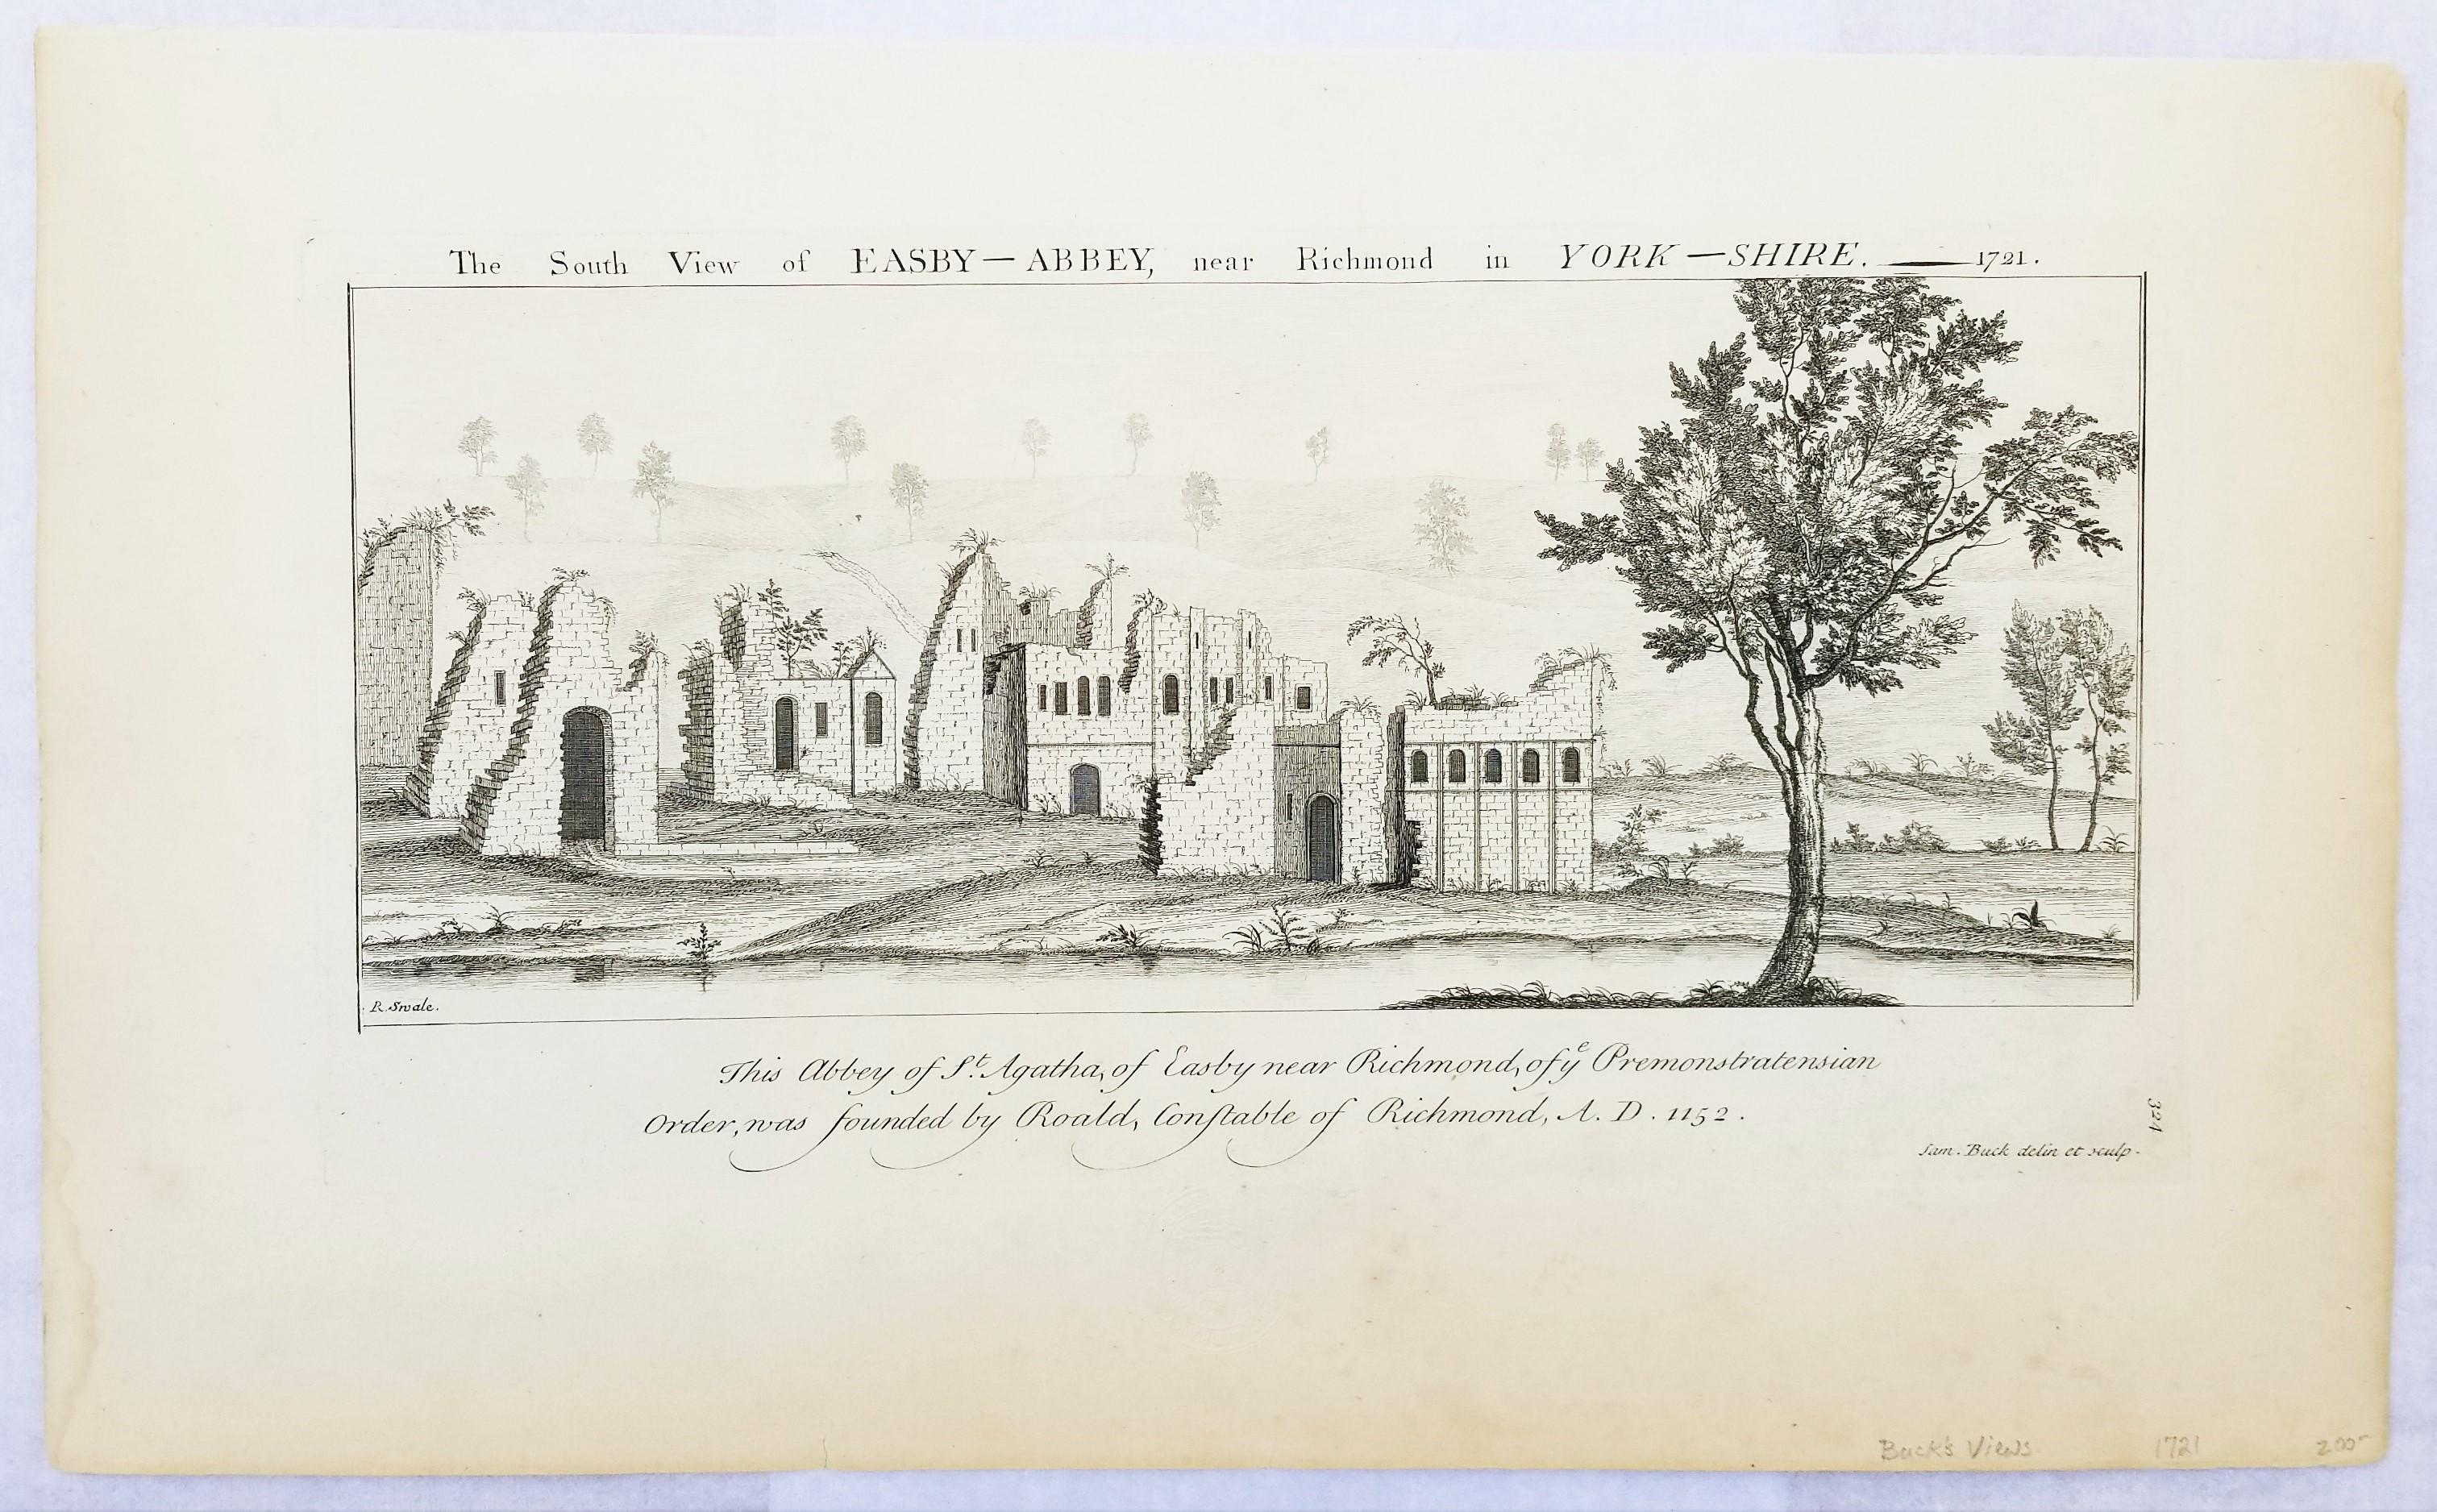 The South View of EASBY—ABBEY, near Richmond in YORK—SHIRE. —— 1721.
R. Swale.
This Abbey of St. Agatha, of Easby near Richmond, of ye Premonstratensian
Order, was founded by Roald, Conſtable of Richmond, A. D. 1152.
324
Sam. Buck delin et sculp.
Buck's Views 1721 200-